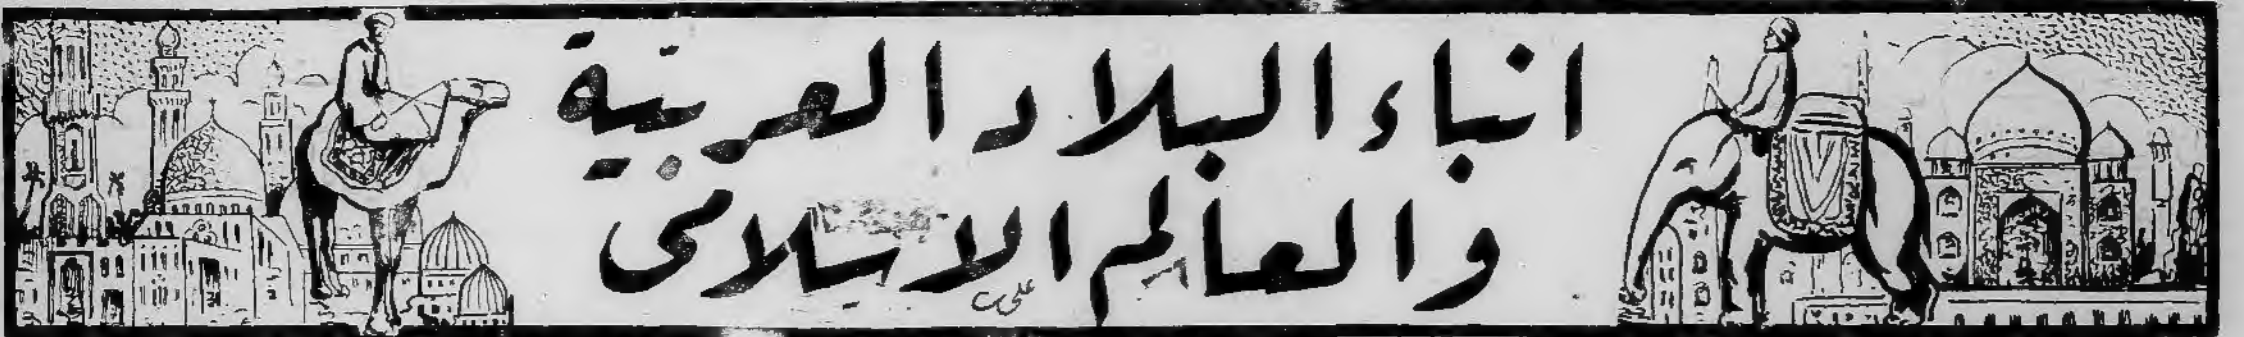 انباء البلاد العربية
والعالم الاسلامى